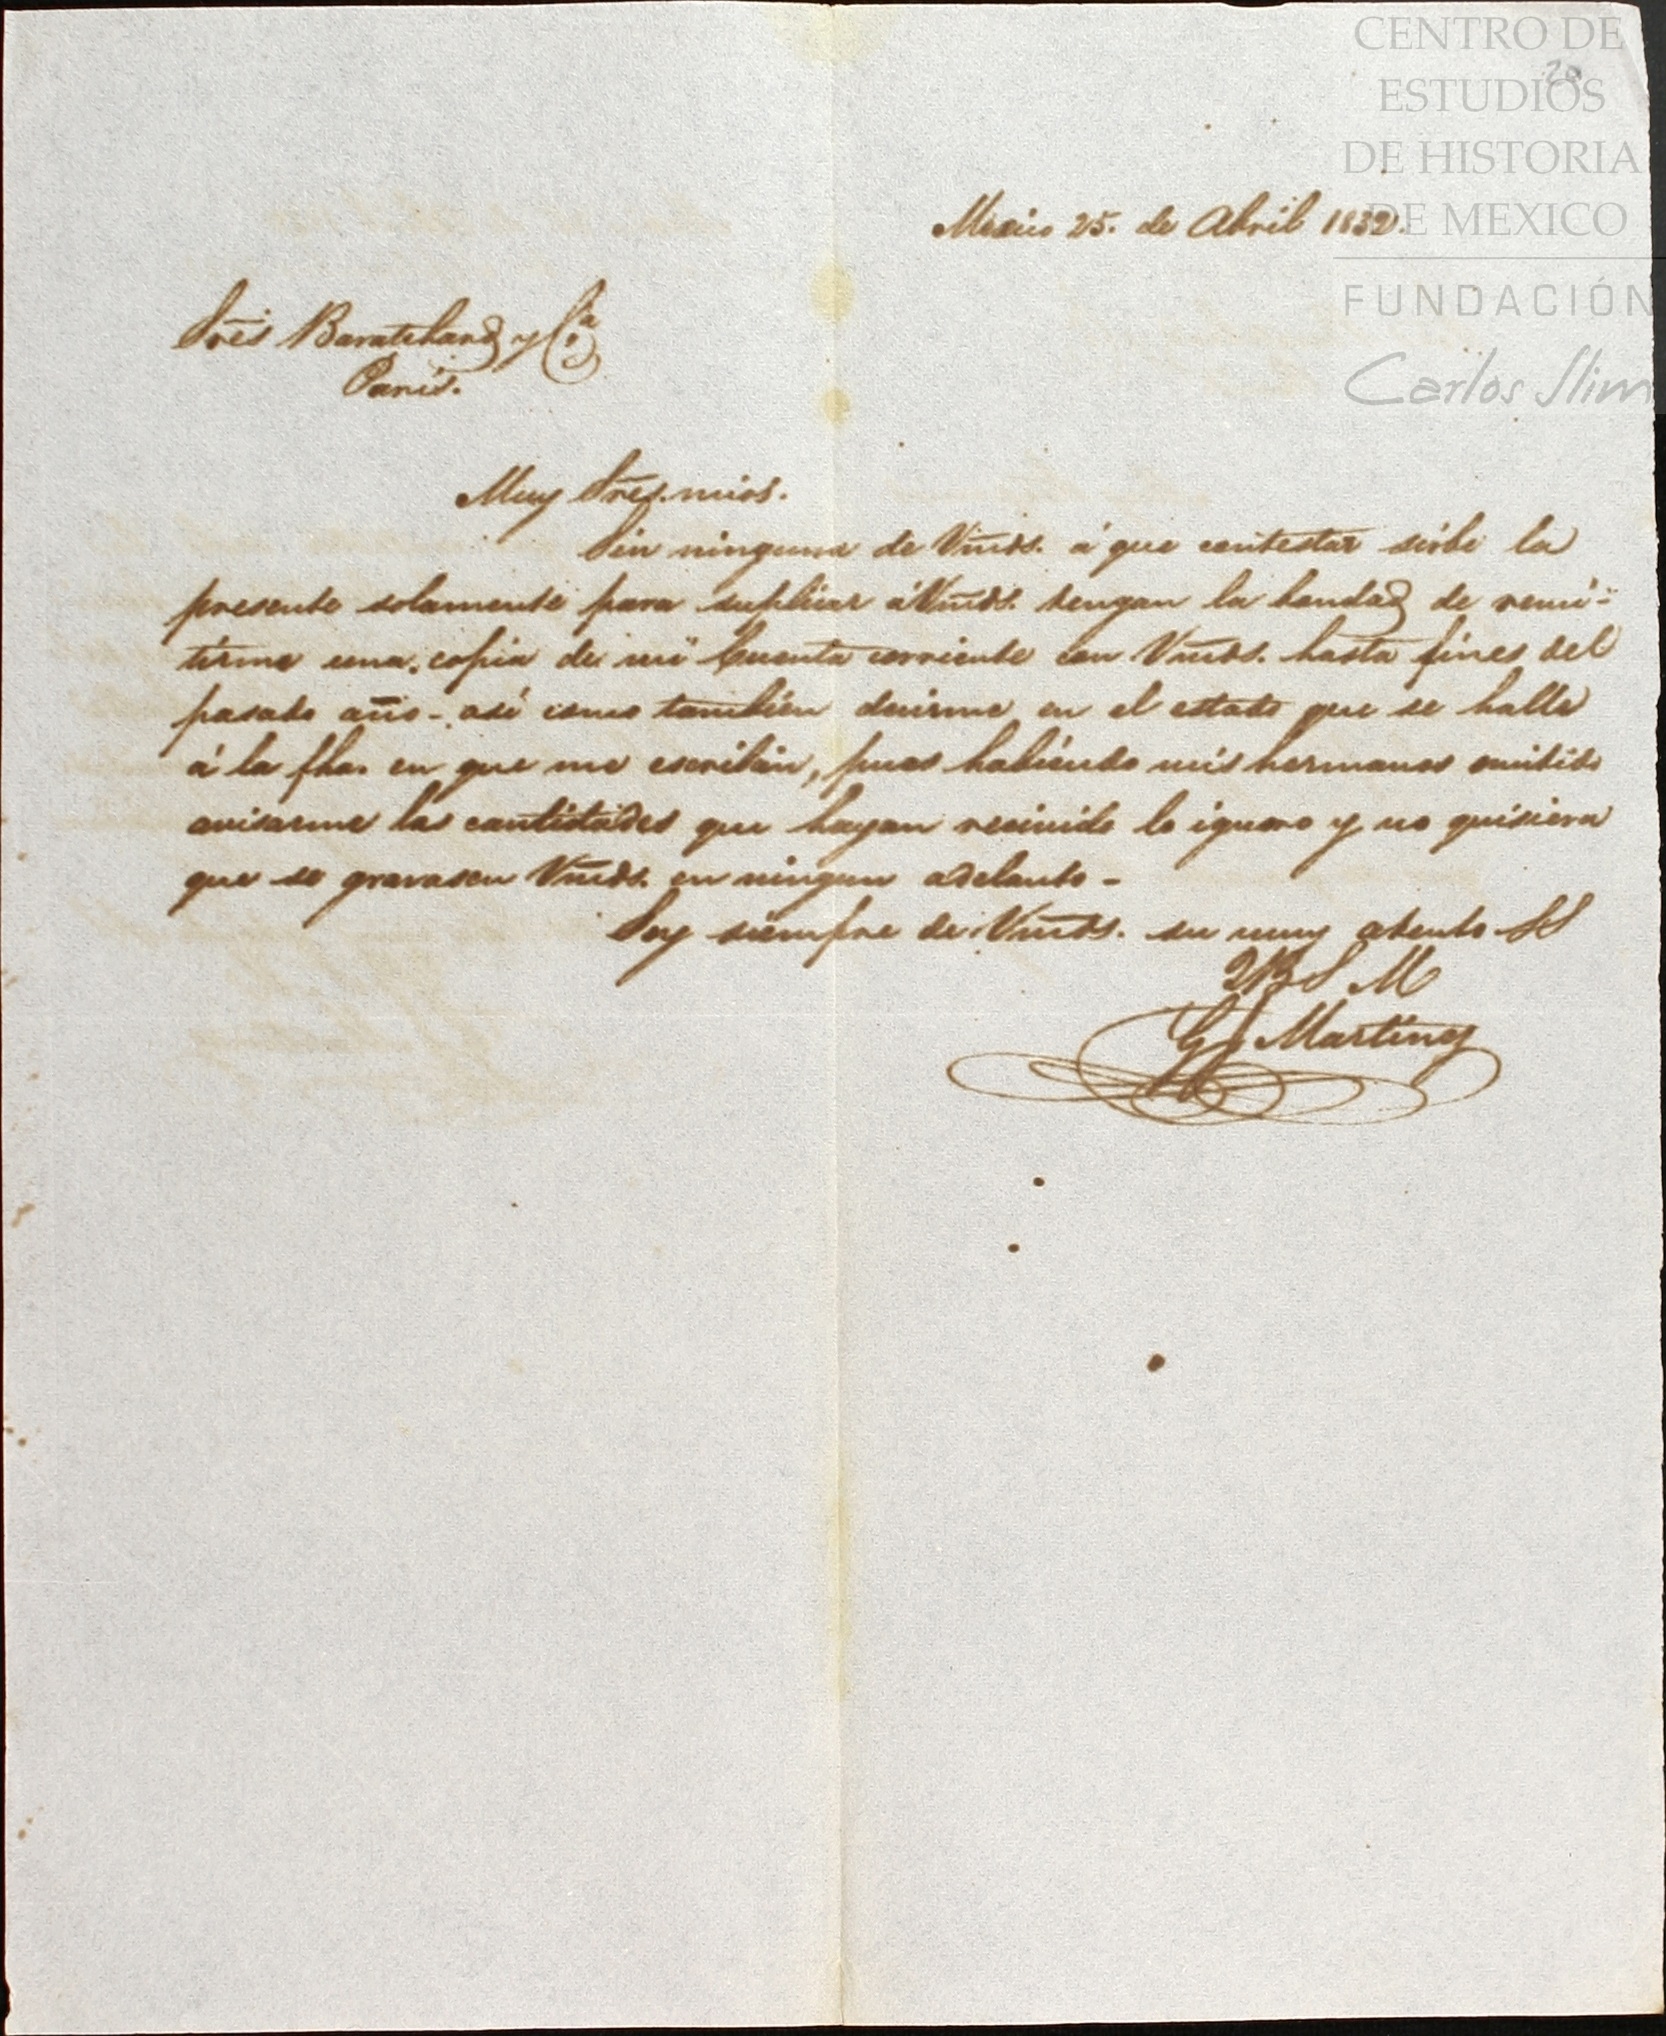 CENTRO DE
ESTUDIOS
DE HISTORIA
DE MEXICO
FUNDACIÓN
Carlos Slim
20
Mexico 25. de Abril 1832.
Sres y Ca
Paris.
Muy Sres. mios.
Sin ninguna de Vmds. á que contestar sirbe la
presente solamente para suplicar á Vmds. tengan la bondad de remi-
tirme una copia de mi Cuenta corriente con Vmds. hasta fines del
pasado año - asi como tambien decirme en el estado que se halla
á la fha. en que me escriban, pues habiendo mis hermanos omitido
avisarme las cantidades que hayan recivido lo ignoro y no quisiera
que se gravasen Vmds. en ningun adelanto -
Soy siempre de Vmds. su muy atento SS
QBSM
G Martinez